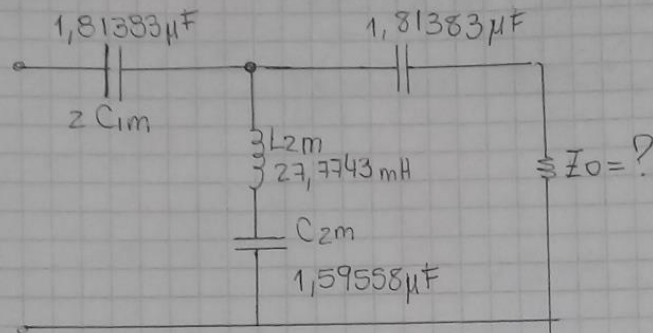 1,81383μF
1,81383μF
2 C1m
L2m
27,7743mH
Z0=?
C2m
1,59558μF